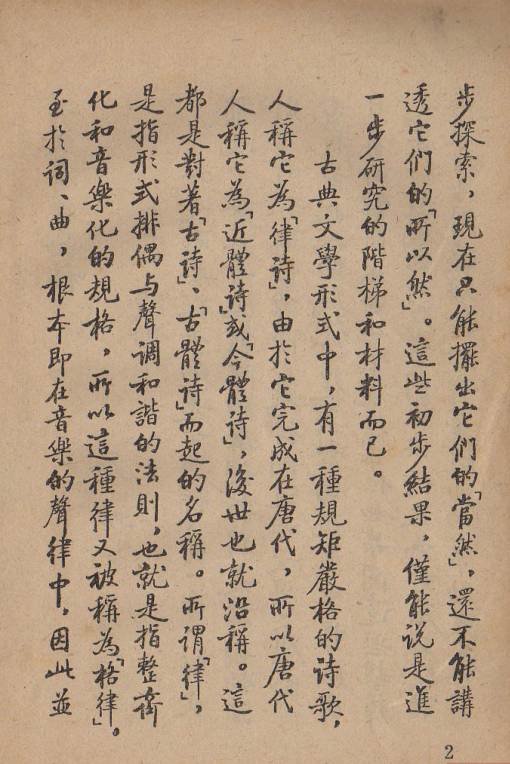 步探索，現在只能擺出它們的「當然」，還不能講
透它們的「所以然」。這些初步結果，僅能说是進
一步研究的階梯和材料而已。
古典文學形式中，有一種規矩嚴格的诗歌，
人稱它為「律诗」，由於它完成在唐代，所以唐代
人稱它為「近體诗」或「今體诗」，後世也就沿稱。這
都是對著「古诗」、「古體诗」而起的名稱。所謂「律」，
是指形式排偶与聲调和諧的法則，也就是指整齊
化和音樂化的規格，所以這種律又被稱為「格律」。
至於词、曲，根本即在音樂的聲律中，因此並
2